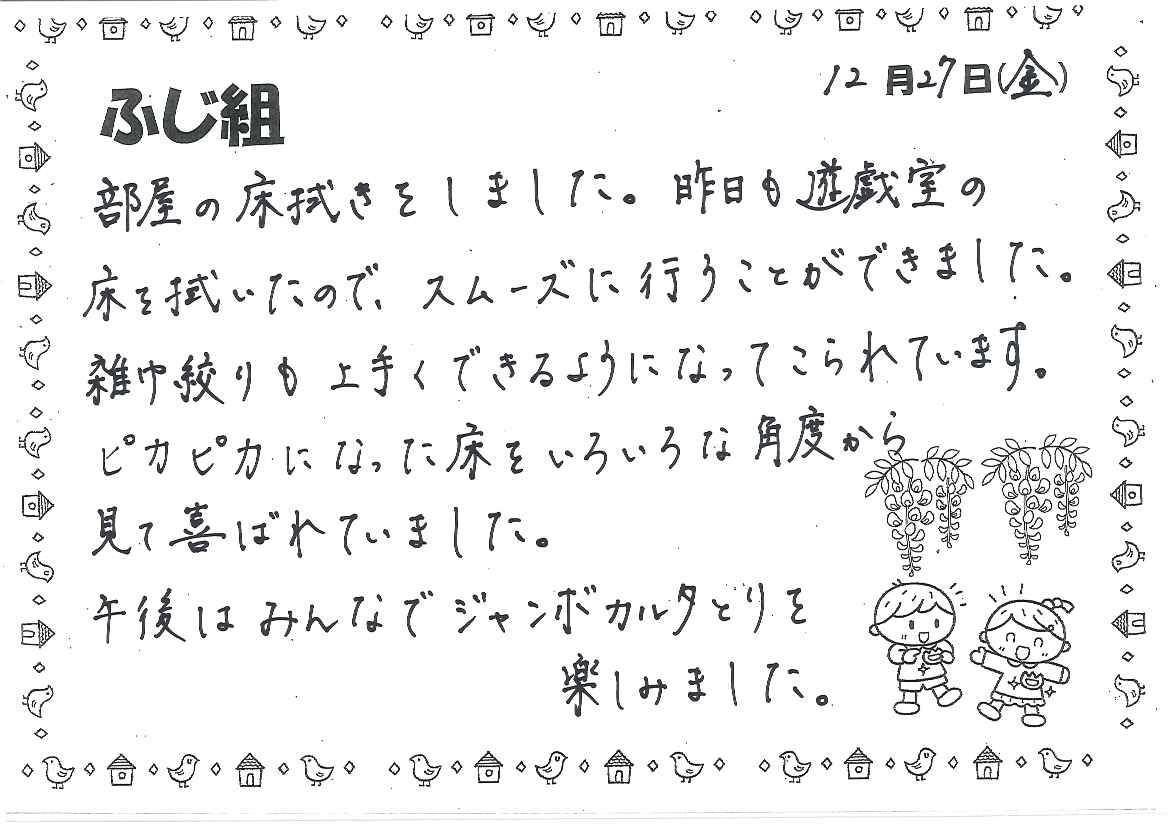 12月27日(金)
ふじ組
部屋の床拭きをしました。昨日も遊戯室の
床を拭いたので、スムーズに行うことができました。
雑巾絞りも上手くできるようになってこられています。
ピカピカになった床をいろいろな角度から
見て喜ばれていました。
午後はみんなでジャンボカルタとりを
楽しみました。